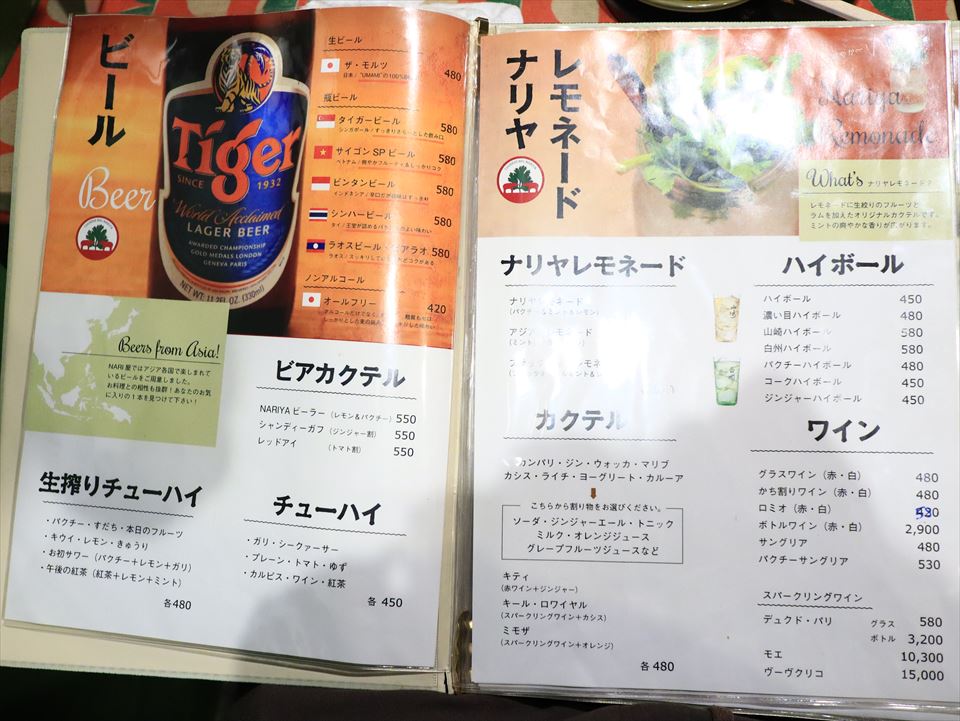 ビール
Beer
Tiger
SINCE 1932
World Acclaimed
LAGER BEER
AWARDED CHAMPIONSHIP
GOLD MEDALS LONDON
GENEVA PARIS
NET WT. 11.2FL OZ. (330ml)
生ビール
ザ・モルツ 480
日本 / "UMAMI"の100%
瓶ビール
タイガービール 580
シンガポール / すっきりさらっとした飲み口
サイゴン SP ビール 580
ベトナム / 爽やかフルーティ&しっかりコク
ビンタンビール 580
インドネシア /
シンハービール 580
タイ / 王室が認める
ラオスビール・ビアラオ 580
ラオス / スッキリして
ノンアルコール
オールフリー 420
アルコールだけでなく、
Beers from Asia!
NARI屋ではアジア各国で楽しまれ
ているビールをご用意しました。
お料理との相性も抜群！あなたのお気
に入りの1本を見つけて下さい！
ビアカクテル
NARIYA ビーラー (レモン&パクチー) 550
シャンディーガフ (ジンジャー割) 550
レッドアイ (トマト割) 550
生搾りチューハイ
・パクチー・すだち・本日のフルーツ
・キウイ・レモン・きゅうり
・お初サワー (パクチー+レモン+ガリ)
・午後の紅茶 (紅茶+レモン+ミント)
各480
チューハイ
・ガリ・シークァーサー
・プレーン・トマト・ゆず
・カルピス・ワイン・紅茶
各 450
レモネード
ナリヤ
Nariya
Lemonade
What's ナリヤレモネード?
レモネードに生絞りのフルーツと
ラムを加えたオリジナルカクテルです。
ミントの爽やかな香りが広がります。
ナリヤレモネード
ナリヤレモネード
(パクチー&ミント&レモン)
カクテル
カンパリ・ジン・ウォッカ・マリブ
カシス・ライチ・ヨーグリート・カルーア
こちらから割り物をお選びください。
ソーダ・ジンジャーエール・トニック
ミルク・オレンジジュース
グレープフルーツジュースなど
キティ
(赤ワイン+ジンジャー)
キール・ロワイヤル
(スパークリングワイン+カシス)
ミモザ
(スパークリングワイン+オレンジ)
各 480
ハイボール
ハイボール 450
濃い目ハイボール 480
山崎ハイボール 580
白州ハイボール 580
パクチーハイボール 480
コークハイボール 450
ジンジャーハイボール 450
ワイン
グラスワイン (赤・白) 480
かち割りワイン (赤・白) 480
ロミオ (赤・白)
ボトルワイン (赤・白) 2,900
サングリア 480
パクチーサングリア 530
スパークリングワイン
デュクド・パリ グラス 580
ボトル 3,200
モエ 10,300
ヴーヴクリコ 15,000